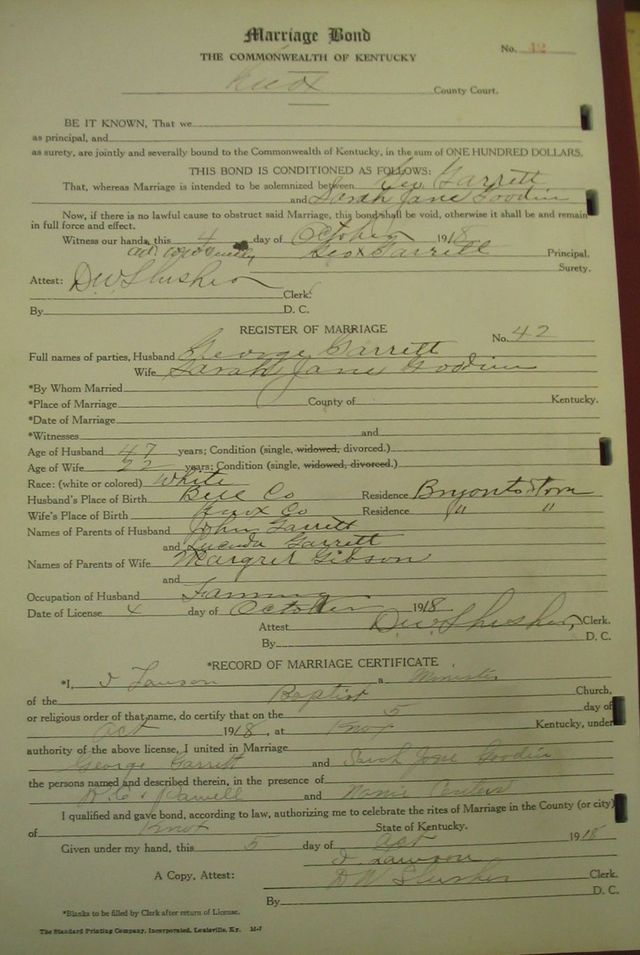 Marriage Bond
No. 42
THE COMMONWEALTH OF KENTUCKY
Knox County Court.
BE IT KNOWN, That we
as principal, and
as surety, are jointly and severally bound to the Commonwealth of Kentucky, in the sum of ONE HUNDRED DOLLARS.
THIS BOND IS CONDITIONED AS FOLLOWS:
That, whereas Marriage is intended to be solemnized between Geo. Garrett
and Sarah Jane Goodin
Now, if there is no lawful cause to obstruct said Marriage, this bond shall be void, otherwise it shall be and remain
in full force and effect.
Witness our hands, this 4 day of October 1918
Geo x Garrett Principal.
Surety.
Attest: D.W. Slusher
Clerk.
By D. C.
REGISTER OF MARRIAGE
No. 42
Full names of parties, Husband George Garrett
Wife Sarah Jane Goodin
*By Whom Married
*Place of Marriage County of Kentucky.
*Date of Marriage
*Witnesses and
Age of Husband 47 years; Condition (single, widowed, divorced.)
Age of Wife 22 years; Condition (single, widowed, divorced.)
Race: (white or colored) White
Husband's Place of Birth Bell Co Residence Bryants Store
Wife's Place of Birth Knox Co Residence " "
Names of Parents of Husband John Garrett
and Lucinda Garrett
Names of Parents of Wife Margret Gibson
and
Occupation of Husband Farming
Date of License 4 day of October 1918
Attest D.W. Slusher, Clerk.
By D. C.
*RECORD OF MARRIAGE CERTIFICATE
*I, J Lawson a Minister
of the Baptist Church,
or religious order of that name, do certify that on the 5 day of
Oct 1918, at Knox Kentucky, under
authority of the above license, I united in Marriage
George Garrett and Sarah Jane Goodin
the persons named and described therein, in the presence of
and Nannie Centers
I qualified and gave bond, according to law, authorizing me to celebrate the rites of Marriage in the County (or city)
of Knox State of Kentucky.
Given under my hand, this 5 day of Oct 1918
J Lawson
A Copy, Attest: D W Slusher Clerk.
By D. C.
*Blanks to be filled by Clerk after return of License.
The Standard Printing Company, Incorporated, Louisville, Ky.